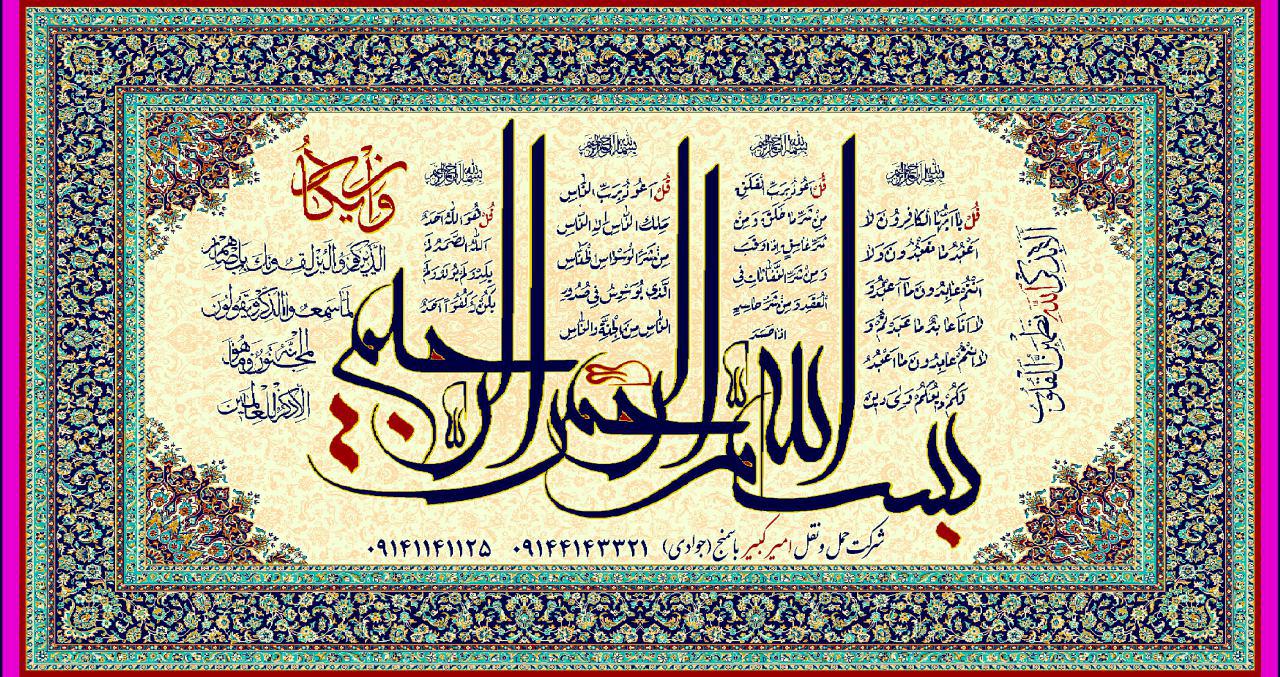 بسم الله الرحمن الرحیم
بسم الله الرحمن الرحیم
قُل یا ایّها الکافرون لا
اعبد ما تعبدون و لا
انتم عابدون ما اعبد و
لا انا عابد ما عبدتم و
لا انتم عابدون ما اعبد
لکم دینکم ولی دین
بسم الله الرحمن الرحیم
قُل اعوذ برب الفلق
من شر ما خلق و من
شر غاسق اذا وقب
و من شر النفاثات فی
العقد و من شر حاسد
اذا حسد
بسم الله الرحمن الرحیم
قُل اعوذ برب الناس
ملک الناس اله الناس
من شر الوسواس الخناس
الذی یوسوس فی صدور
الناس من الجنة والناس
بسم الله الرحمن الرحیم
قُل هو الله احد
الله الصمد لم
یلد و لم یولد و لم
یکن له کفوا احد
و ان یکاد
الذین کفروا لیزلقونک بابصارهم
لما سمعوا الذکر و یقولون
انه لمجنون و ما هو
الا ذکر للعالمین
الا بذکر الله تطمئن القلوب
شرکت حمل و نقل امیرکبیر باسمنج (جوادی) ۰۹۱۴۴۱۴۳۳۲۱ ۰۹۱۴۱۱۴۱۱۲۵